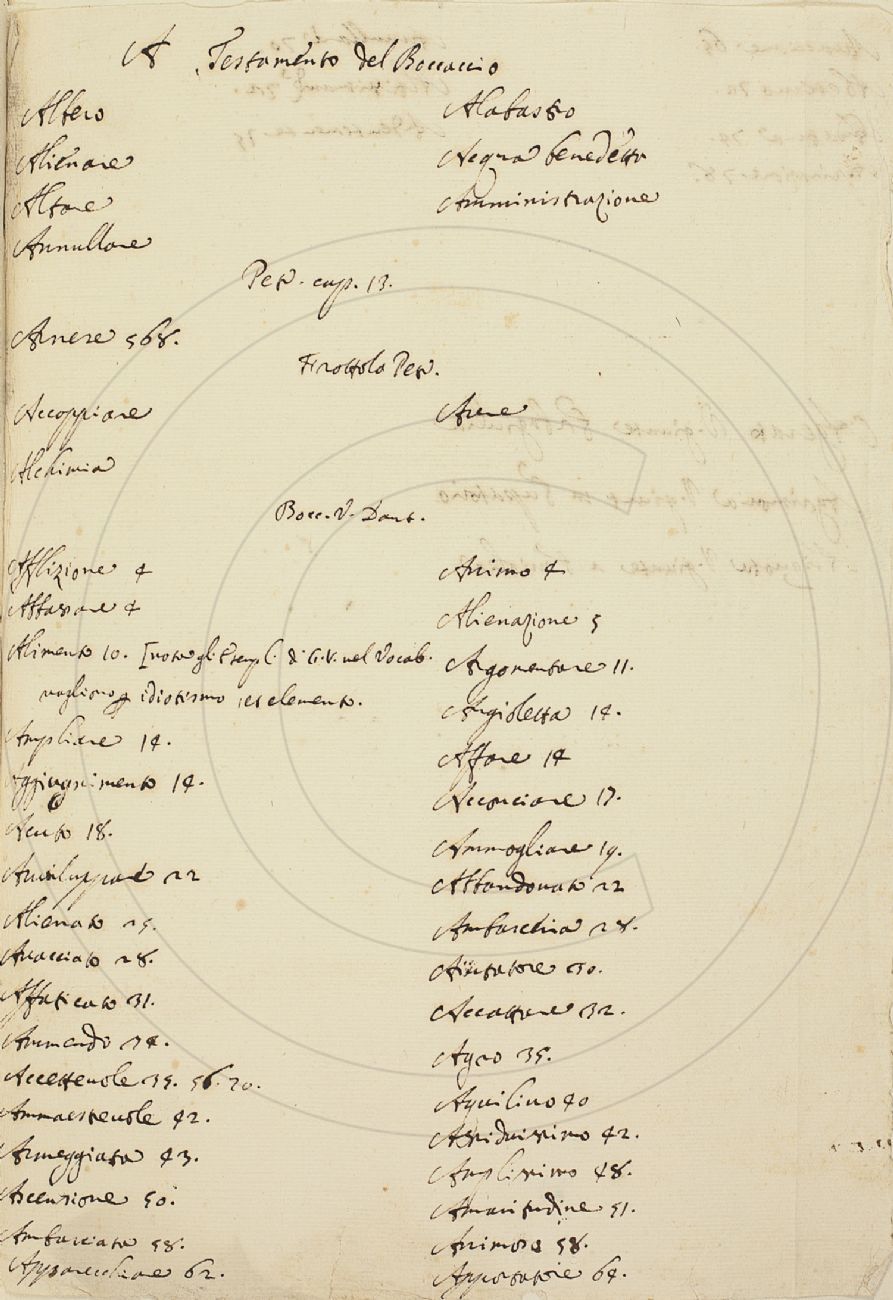 A Testamento del Boccaccio
Altero
Alienare
Altare
Annullare
Alabastro
Acqua benedetta
Amministrazione
Petr. cap. 13.
Arnese 568.
Frottola Petr.
Accoppiare
Alchimia
Avere
Bocc. V. Dant.
Afflizione 4
Abbassare 4
Alimento 10. [nota gli Esempli di G. V. nel Vocab.
vagliono p idiotismo et elemento.
Ampliare 14.
Aggiugnimento 14.
Acuto 18.
Aviluppare 22
Alienato 25.
Avacciato 28.
Affaticato 31.
Ammenda 34.
Accettevole 35. 56. 70.
Ammaestrevole 42.
Armeggiata 43.
Ascensione 50.
Ambasciata 58.
Apparecchiare 62.
Animo 4
Alienazione 5
Argomentare 11.
Angioletta 14.
Affare 14
Acconciare 17.
Ammogliare 19.
Abbandonato 22
Ambascia 28.
Aiutatore 30.
Accattare 32.
Agro 35.
Aquilino 40
Assiduissimo 42.
Amplissimo 48.
Amaritudine 51.
Animoso 58.
Apportatore 64.